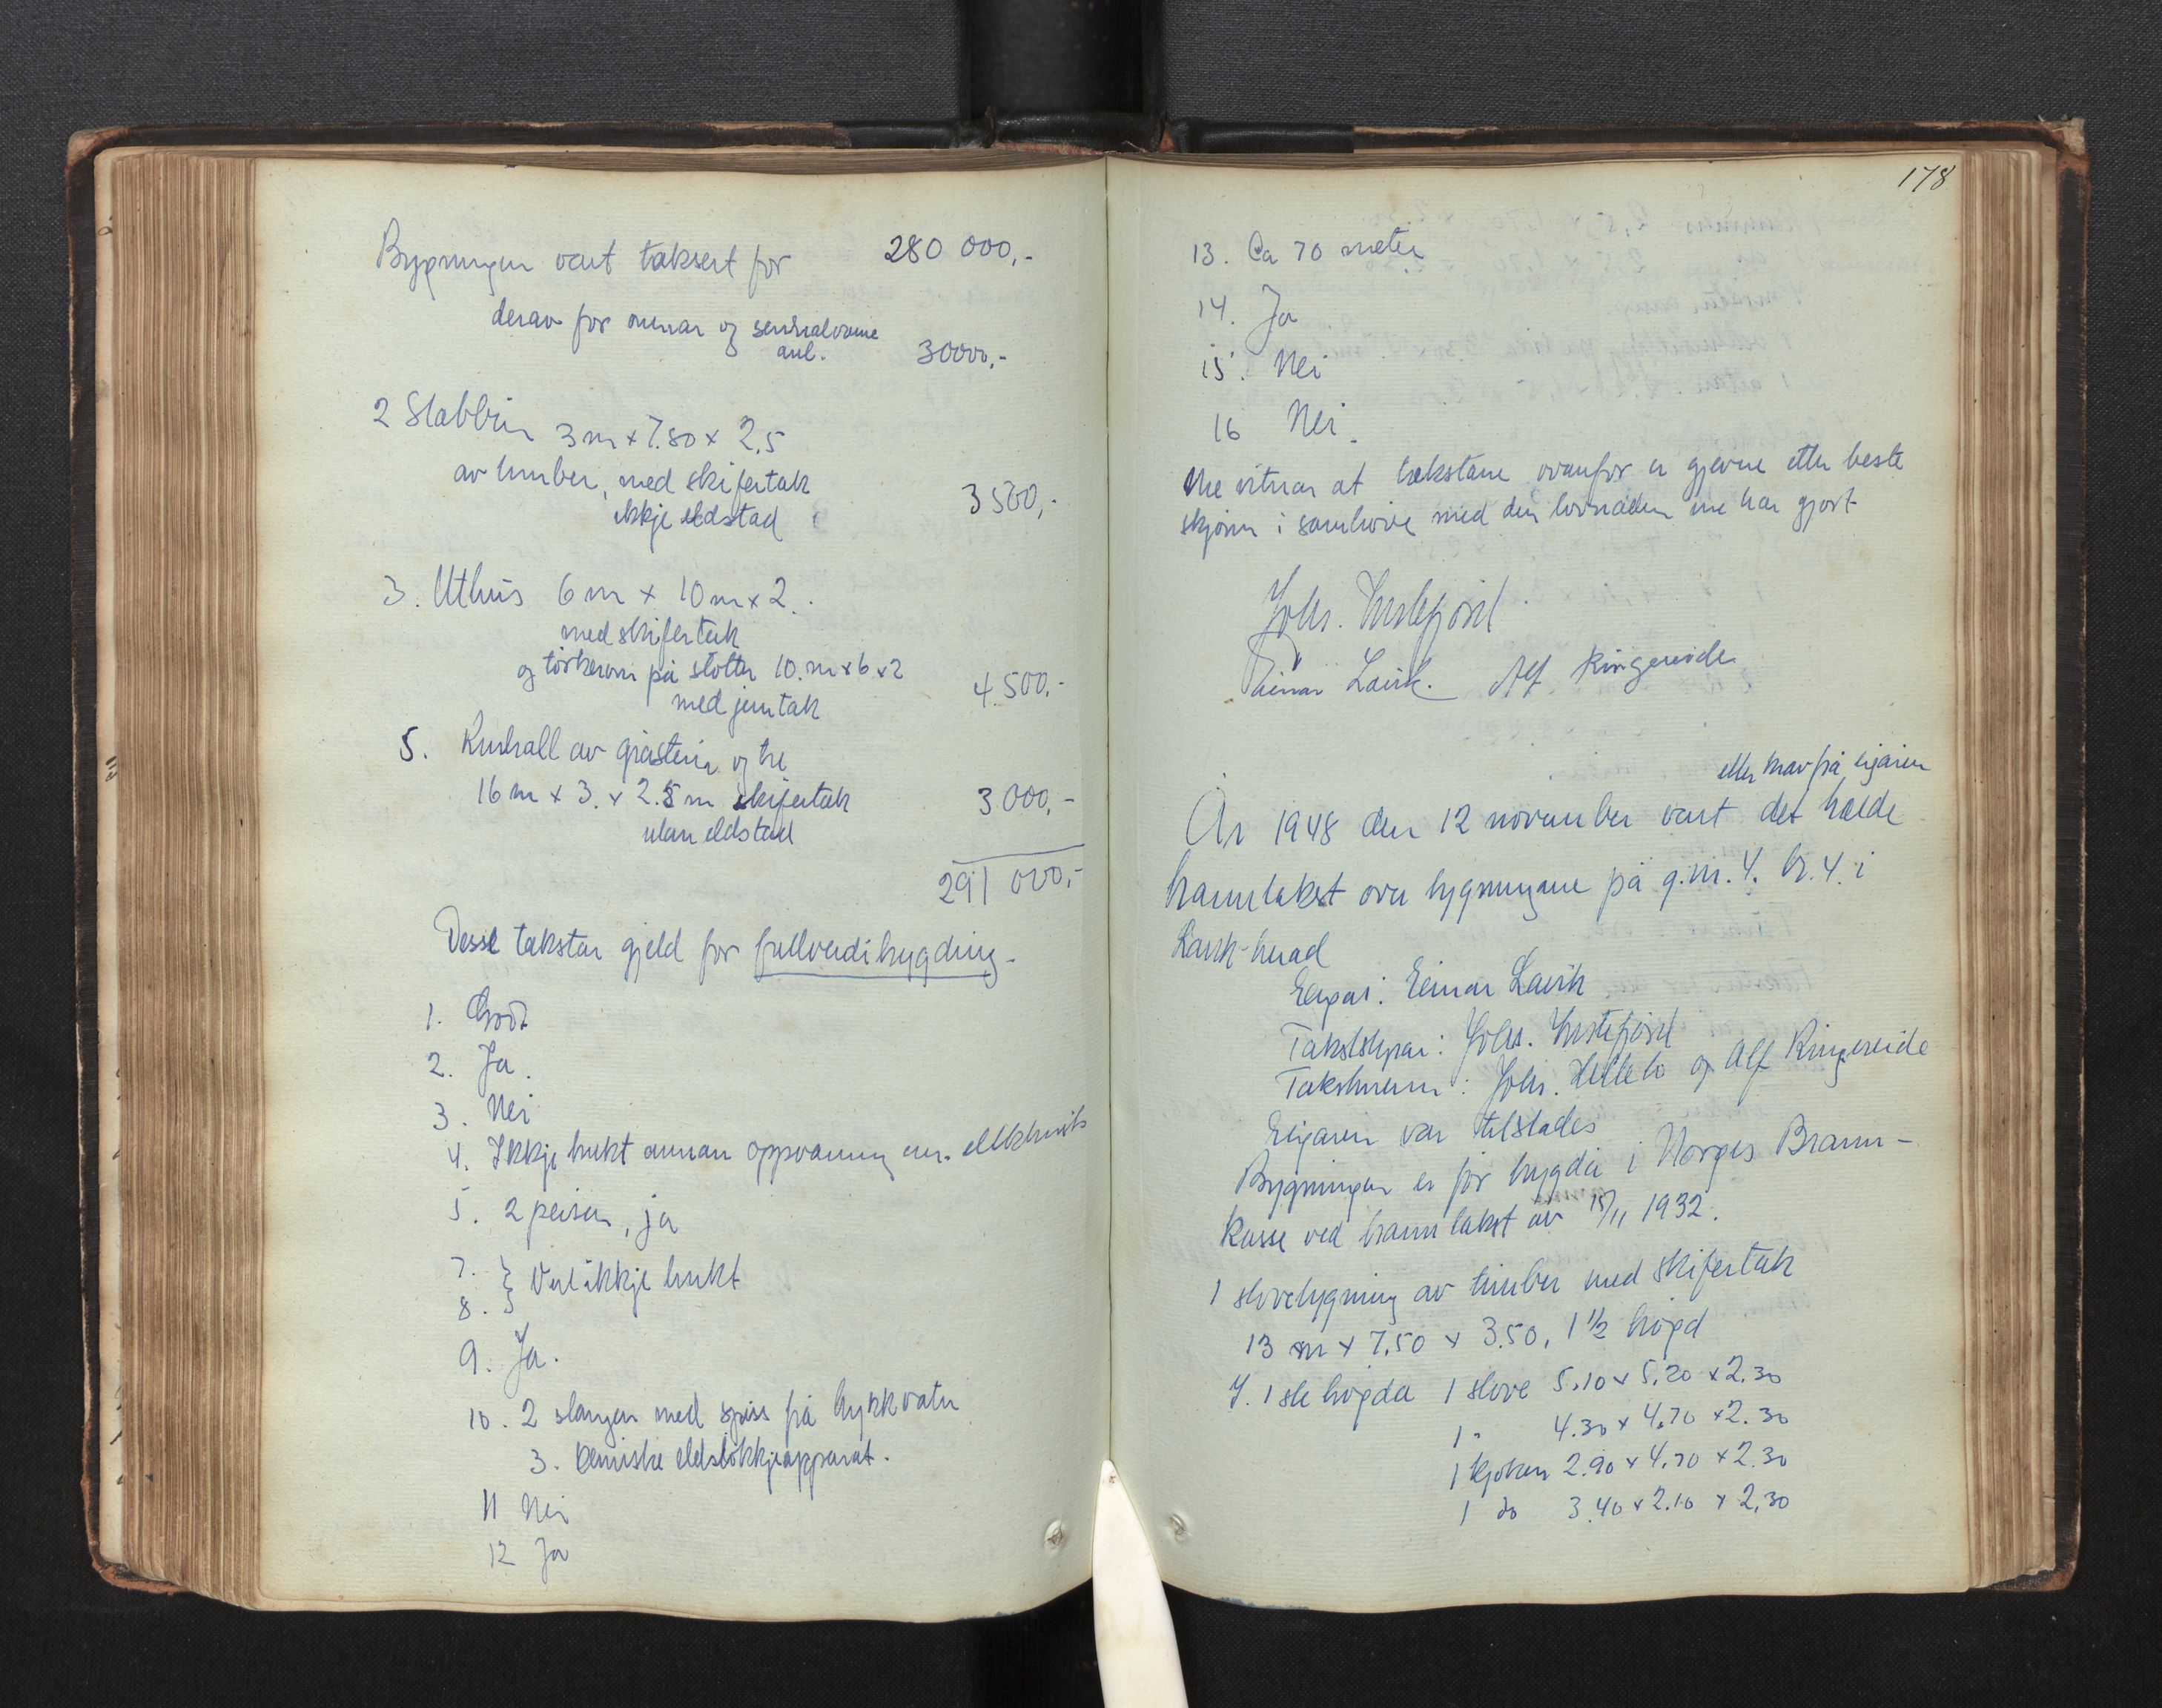 Bygningen vart taksert for 280 000,-
derav for omnar og sentralvarme
anl. 30000,-
2 Stabbur 3 m x 7.80 x 2,5
av timber, med skifertak
ikkje eldstad 3500,-
3. Uthus 6 m x 10 m x 2.
med skifertak
og törkerom på stolter 10. m x 6 x 2
med jerntak 4.500,-
5. Kuhall av gråstein og tre
16 m x 3. x 2.5 m skifertak 3000,-
utan eldstad
291 000,-
Desse takstar gjeld for fullverdibygding.
1. Godt
2. Ja.
3. Nei
4. Ikkje brukt annan oppvarming enn elektrisk
5. 2 peisar, ja
7. } Vert ikkje brukt
8. }
9. Ja.
10. 2 slanger med spiss frå trykkvatn
3. kemiske eldslökkjeapparat.
11 Nei
12 Ja
178
13. Ca 70 meter
14. Ja
15. Nei
16 Nei.
Me vitnar at takstane ovanfor er gjevne etter beste
skjønn i samhøve med den lovnaden me har gjort
Johs.
Einar Lavik. Alf Ringereide
etter krav frå eigaren
År 1948 den 12 november vart det halde
branntakst over bygningane på g.nr. 4. br. 4. i
Lavik-herad
Eigar: Einar Lavik
Takststyrar: Johs.
Takstmenn: Johs. Helleb og Alf Ringereide
Eigaren var tilstades
Bygningen er för trygda i Norges Brann-
kasse ved branntakst av 15/11 1932.
1 stovebygning av timber med skifertak
13 m x 7,50 x 3.50, 1 1/2 högd
I. 1ste högda 1 stove 5.10 x 5,20 x 2.30
1 " 4.30 x 4,70 x 2.30
1 kjøken 2.90 x 4,70 x 2.30
1 do 3.40 x 2.10 x 2,30